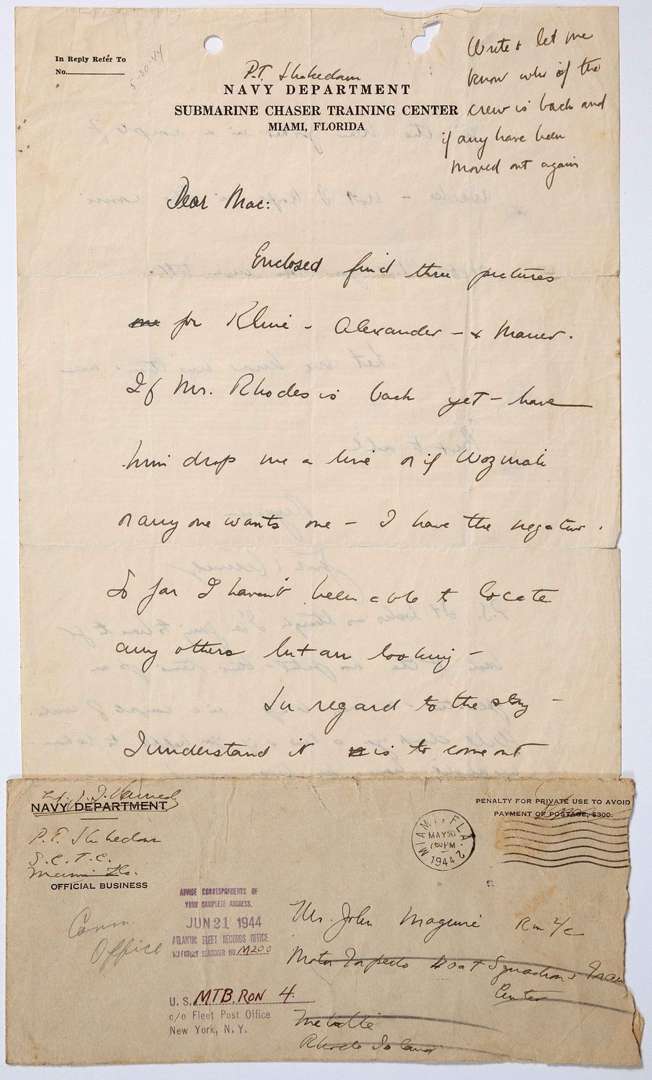 In Reply Refer To
No.
5-30-44
P.T. Shakedown
NAVY DEPARTMENT
SUBMARINE CHASER TRAINING CENTER
MIAMI, FLORIDA
Write & let me
know who of the
crew is back and
if any have been
moved out again
Dear Mac:
Enclosed find three pictures
for Kline - Alexander - & Mauer.
If Mr. Rhodes is back yet - have
him drop me a line or if
or any one wants one - I have the negative.
So far I haven't been able to locate
any others but am looking -
In regard to the story -
I understand it is to come out
NAVY DEPARTMENT
P.T. Shakedown
S.C.T.C.
Miami Fla.
OFFICIAL BUSINESS
PENALTY FOR PRIVATE USE TO AVOID
PAYMENT OF POSTAGE, $300.
MIAMI, FLA.
MAY 30
PM
1944
Comm
Office
ADVISE CORRESPONDENTS OF
YOUR COMPLETE ADDRESS.
JUN 21 1944
ATLANTIC FLEET RECORDS OFFICE
M200
U.S. MTB. RON 4.
c/o Fleet Post Office
New York, N. Y.
Mr. John Maguire Rm 2/c
Motor Torpedo Boat Squadrons Train
Center
Melville
Rhode Island